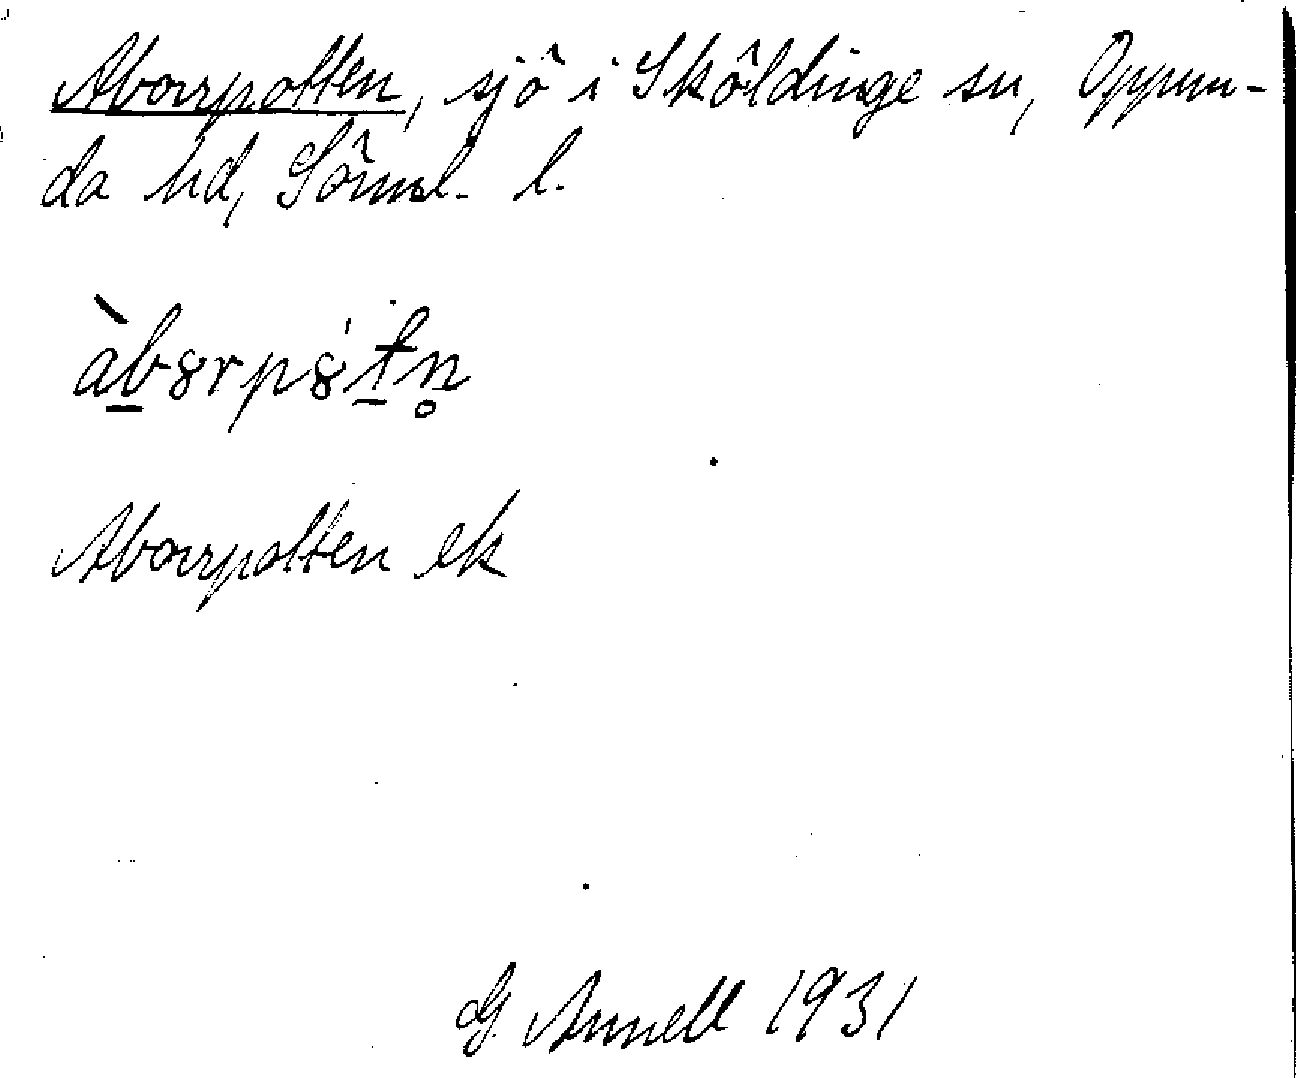 Aborrpotten, sjö i Sköldinge sn, Oppun-
da hd, Sörml. l.
àb8rp8́tn̥
Aborrpotten ek
G. Annell 1931